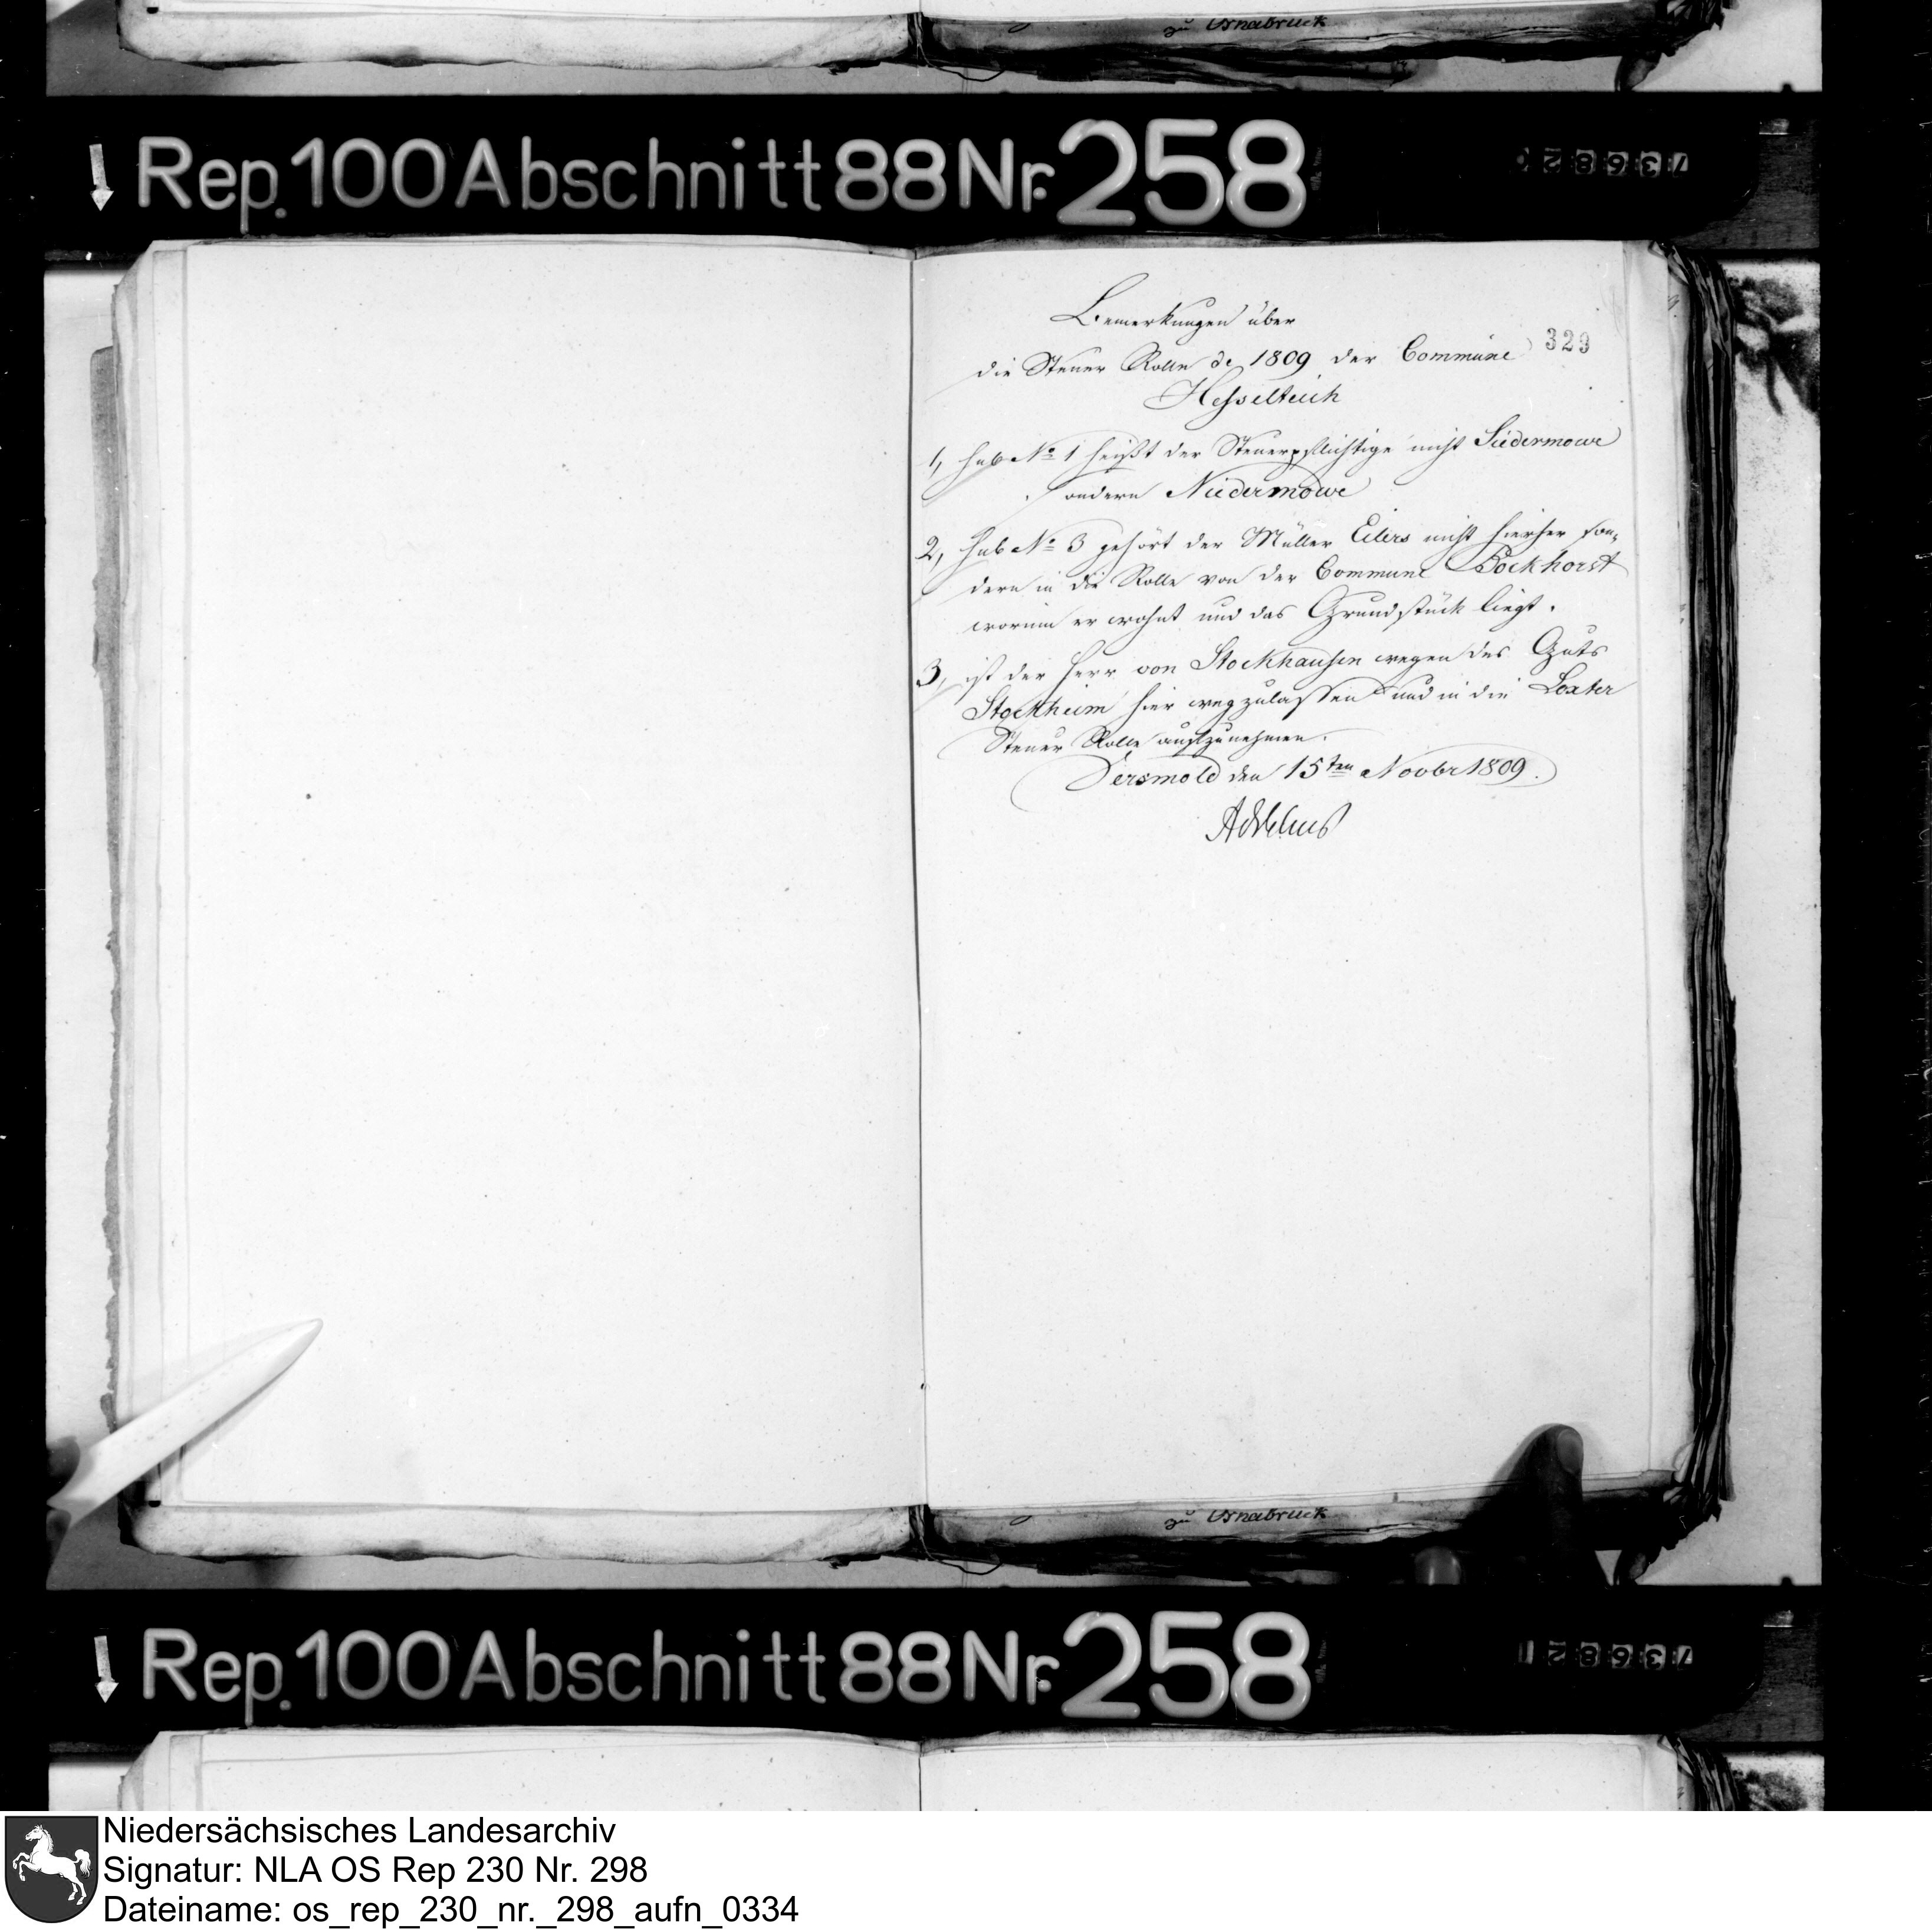 zu Osnabruck
Rep. 100 Abschnitt 88 Nr. 258
Bemerkungen über
die Steuer Rolle de 1809 der Commüne
329
Hesselteich
1, sub No 1 heißt der Steuerpflichtige nicht Südermowe
sondern Niedermowe
2, sub No 3 gehört der Müller Eilers nicht hierher son-
dern in die Rolle von der Commune Bockhorst
worinn er wohnt und das Grundstück liegt.
3, ist der Herr von Stockhausen wegen des Guts
Stockheim hier wegzulassen und in die Loxter
Steuer Rolle aufzunehmen.
Versmold den 15ten Novbr 1809.
zu Osnabruck
Rep. 100 Abschnitt 88 Nr. 258
Niedersächsisches Landesarchiv
Signatur: NLA OS Rep 230 Nr. 298
Dateiname: os_rep_230_nr._298_aufn_0334